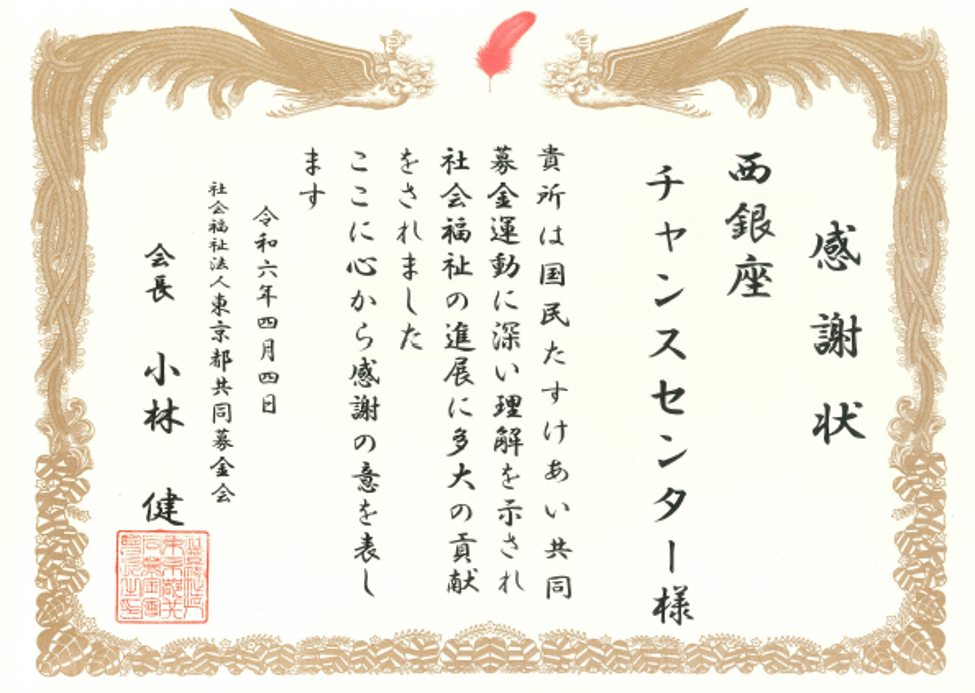 感謝状
西銀座
チャンスセンター様
貴所は国民たすけあい共同
募金運動に深い理解を示され
社会福祉の進展に多大の貢献
をされました
ここに心から感謝の意を表し
ます
令和六年四月四日
社会福祉法人東京都共同募金会
会長 小林 健